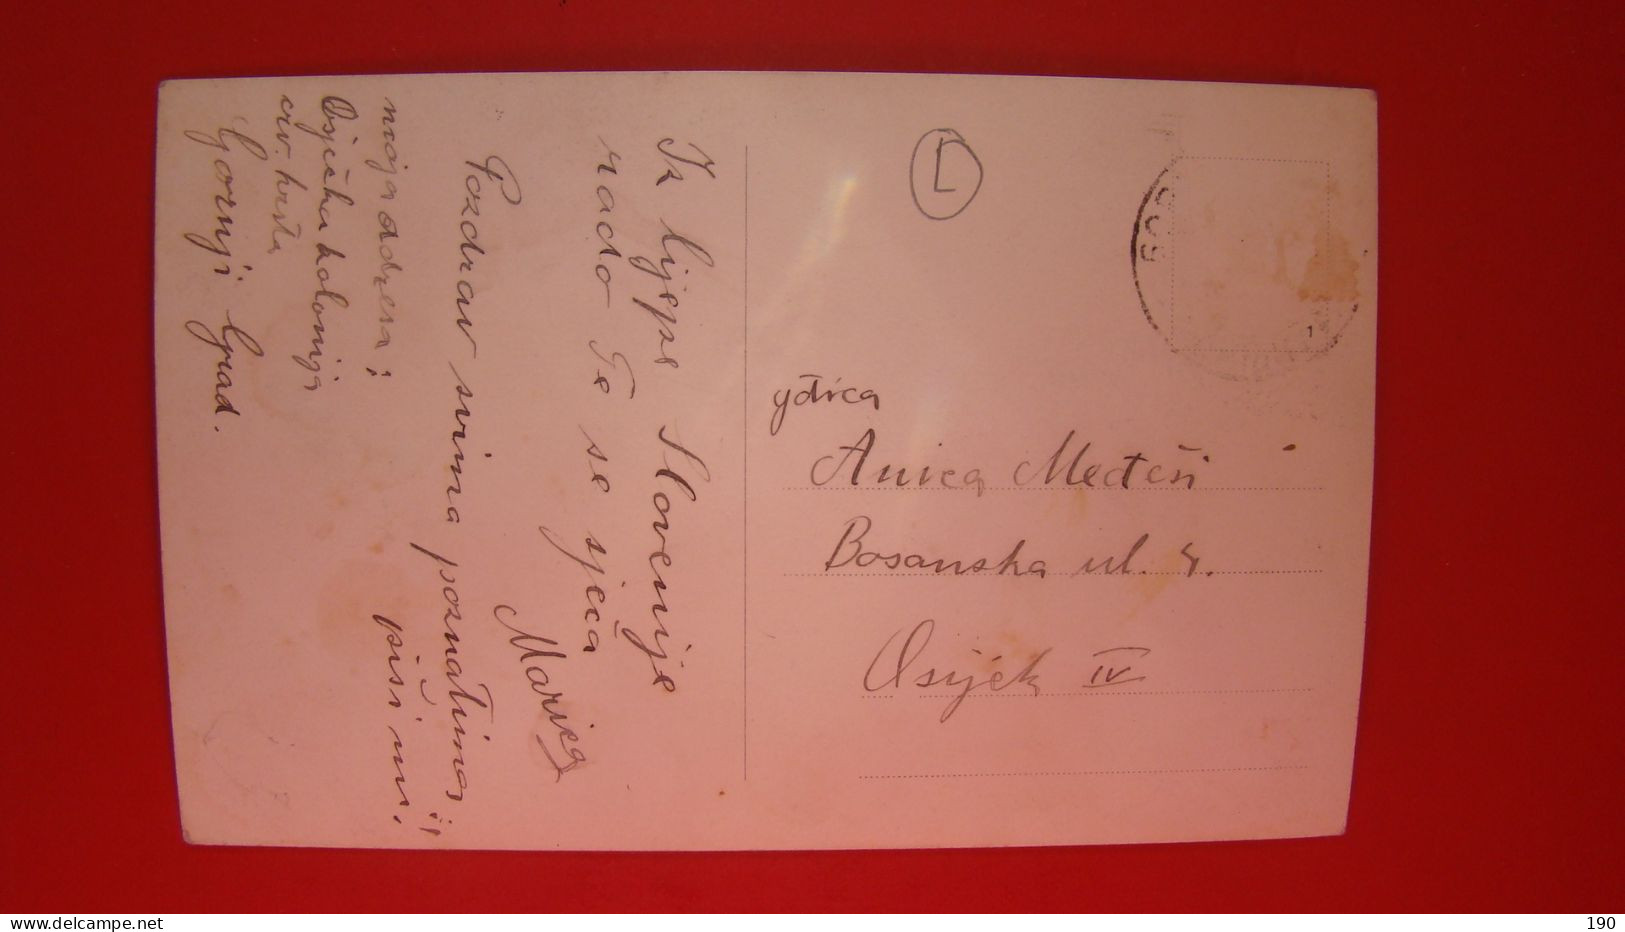 Iz lijepe Slovenije
rado Te se sjeća
Marica
Pozdrav svima poznatima i
piši mi.
moja adresa:
Osječka kolonija
Gornji Grad.
L
gđica
Anica Međeši
Bosanska ul. 4.
Osijek IV
1
190